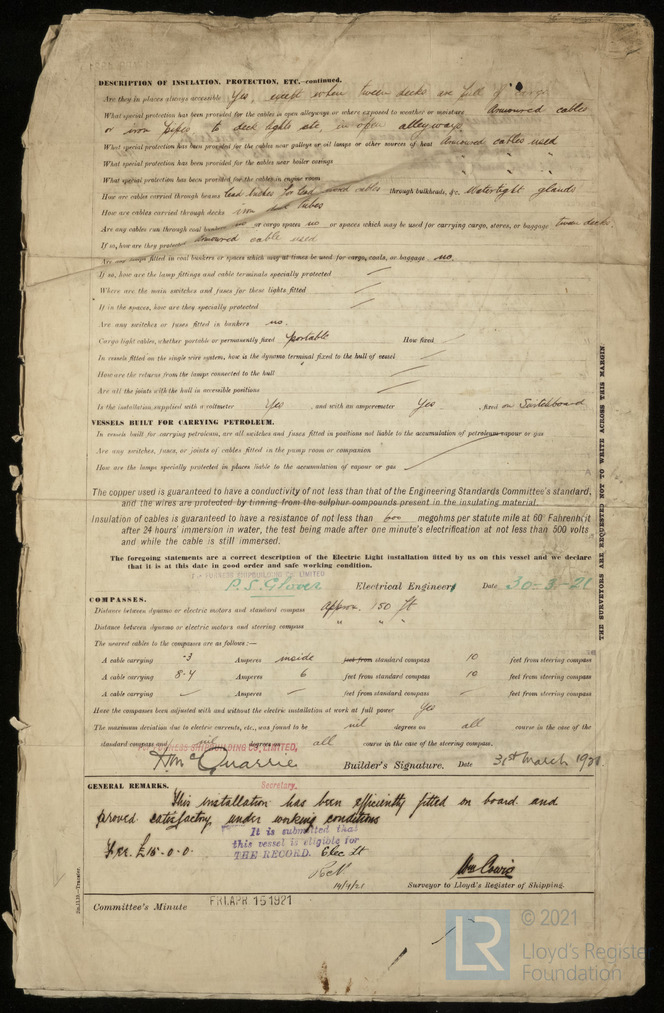 DESCRIPTION OF INSULATION, PROTECTION, ETC.—continued.
Are they in places always accessible Yes, except when tween decks are full of cargo
What special protection has been provided for the cables in open alleyways or where exposed to weather or moisture Armoured cables
or iron pipes to deck lights etc, in open alleyways
What special protection has been provided for the cables near galleys or oil lamps or other sources of heat Armoured cables used
What special protection has been provided for the cables near boiler casings " " "
What special protection has been provided for the cables in engine room " " "
How are cables carried through beams Lead bushes for lead cables through bulkheads, &c. Watertight glands
How are cables carried through decks iron tubes
Are any cables run through coal bunkers no or cargo spaces no or spaces which may be used for carrying cargo, stores, or baggage tween decks
If so, how are they protected Armoured cable used
Are any lamps fitted in coal bunkers or spaces which may at times be used for cargo, coals, or baggage no.
If so, how are the lamp fittings and cable terminals specially protected —
Where are the main switches and fuses for these lights fitted —
If in the spaces, how are they specially protected —
Are any switches or fuses fitted in bunkers no.
Cargo light cables, whether portable or permanently fixed portable How fixed —
In vessels fitted on the single wire system, how is the dynamo terminal fixed to the hull of vessel —
How are the returns from the lamps connected to the hull —
Are all the joints with the hull in accessible positions —
Is the installation supplied with a voltmeter Yes and with an amperemeter Yes , fixed on Switchboard
VESSELS BUILT FOR CARRYING PETROLEUM.
In vessels built for carrying petroleum, are all switches and fuses fitted in positions not liable to the accumulation of petroleum vapour or gas
Are any switches, fuses, or joints of cables fitted in the pump room or companion
How are the lamps specially protected in places liable to the accumulation of vapour or gas
The copper used is guaranteed to have a conductivity of not less than that of the Engineering Standards Committee's standard,
and the wires are protected by tinning from the sulphur compounds present in the insulating material.
Insulation of cables is guaranteed to have a resistance of not less than 600 megohms per statute mile at 60° Fahrenheit
after 24 hours' immersion in water, the test being made after one minute's electrification at not less than 500 volts
and while the cable is still immersed.
The foregoing statements are a correct description of the Electric Light installation fitted by us on this vessel and we declare
that it is at this date in good order and safe working condition.
FURNESS SHIPBUILDING CO LIMITED
P.S. Glover Electrical Engineers Date 30-3-21
COMPASSES.
Distance between dynamo or electric motors and standard compass Approx. 150 ft
Distance between dynamo or electric motors and steering compass " " "
The nearest cables to the compasses are as follows:—
A cable carrying ·3 Amperes inside feet from standard compass 10 feet from steering compass
A cable carrying 8·4 Amperes 6 feet from standard compass 10 feet from steering compass
A cable carrying — Amperes — feet from standard compass — feet from steering compass
Have the compasses been adjusted with and without the electric installation at work at full power Yes
The maximum deviation due to electric currents, etc., was found to be nil degrees on all course in the case of the
standard compass and nil degrees on all course in the case of the steering compass.
FURNESS SHIPBUILDING CO, LIMITED,
Builder's Signature. Date 31st March 1921
Secretary.
GENERAL REMARKS.
This installation has been efficiently fitted on board and
proved satisfactory under working conditions
Fee £15-0-0.
It is submitted that
this vessel is eligible for
THE RECORD. Elec Lt
14/4/21
Surveyor to Lloyd's Register of Shipping.
Committee's Minute FRI. APR 15 1921
THE SURVEYORS ARE REQUESTED NOT TO WRITE ACROSS THIS MARGIN.
© 2021
LR
Lloyd's Register
Foundation